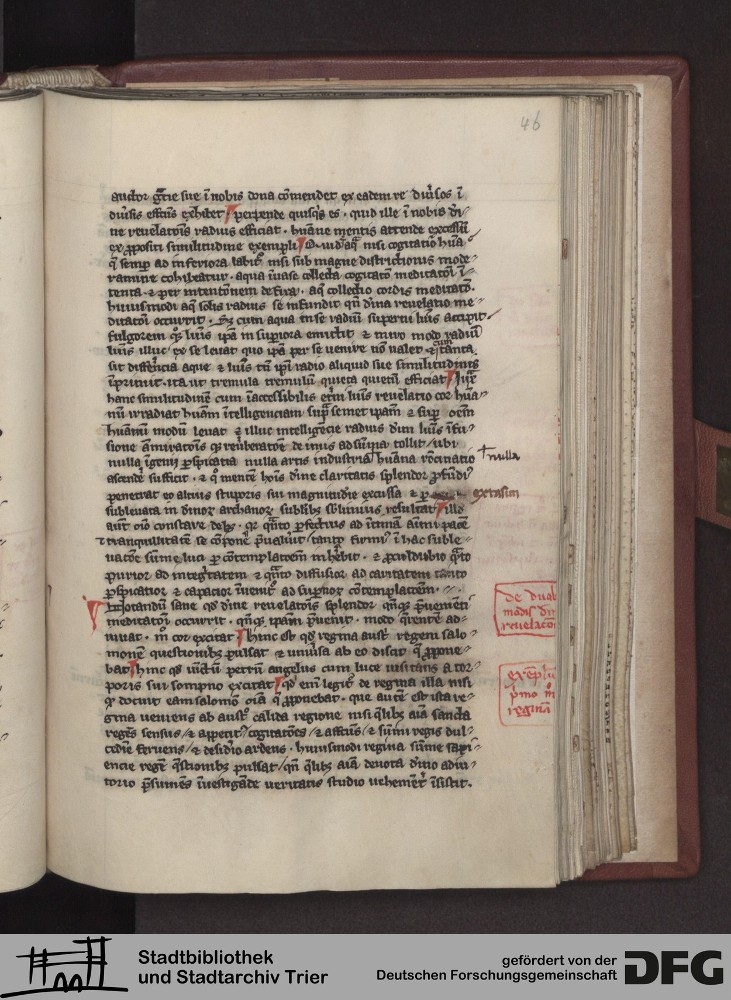 46
auctor grẽ sue ĩ nobis dona cõmendet ex eadem re diũsos ĩ
diũsis effcũs exhibet perpende quisq̃s es · quid ille ĩ nobis di
ne reuelatõis radius efficiat · huãne mentis attende excessũ
ex ꝓpositi similitudine exempli Quid aq̃ nisi cogitatio huãa
q̃ semp ad inferiora labit᷑ nisi sub magne districtionis mode
ramine cohibeatur · aqua ĩ uase collecta cogitatõ meditatõi ĩ
tenta · ⁊ per intentõnem defixa · aq̃ collectio cordis meditatõ ·
huiusmodi aq̃ solis radius se infundit qñ diña reuelatio me
ditatõi occurrit · Sz cum aqua in se radiũ superni luĩs accipit
fulgorem luĩs ip̃a in superiora emittit ⁊ miro modo radiũ
luĩs illuc ex se leuat quo ip̃a per se uenire nõ ualet · ⁊ cum tãnta
sit differẽcia aque ⁊ luĩs tñ ip̃i radio aliquid sue similitudinis
ĩprimit · ita ut tremula tremulũ quieta quietũ efficiat Iux̃
hanc similitudinẽ cum ĩaccessibilis et̃ni luĩs reuelatio cor huã
nũ irradiat huãm ĩtelligenciam sup̃ semet ip̃am ⁊ sup̃ oẽm
huãnũ modũ leuat ⁊ illuc intelligẽcie radius diñi luĩs ĩfu
sione amiratõis reũberatõe de imis ad sũma tollit / ubi
nulla ĩgenij ꝑspicatia nulla artis industria huãna rõcinatio
nulla
ascendẽ sufficit · ⁊ q̃ mentẽ hoĩs diñe claritatis splendor ꝓfũdi᷑
penetrat eo altius stuporis sui magnitudĩe excussa ⁊ ꝑ
extasim
subleuata in diuoꝝ archanoꝝ sublib9 sblimius resultat Illd
aũt oĩo constare debz · qz q̃nto ꝑfectius ad ĩtimã aĩmi pacẽ
⁊ tranquillitatẽ se cõponẽ p̃ualuit / tanto firmi9 ĩ hac suble
uatõe sũme luci ꝑ cõtemplatoẽm inhẽbit · ⁊ ꝓculdubio q̃to
purior ad integritatem ⁊ q̃nto diffusior ad caritatem tãnto
ꝑspicatior ⁊ capacior ĩuenit᷑ ad supnoꝝ cõtemplatoẽm ·
Notandũ sane qd diñe reuelatõis splendor qñqz p̃uenient
meditatõi occurrit · qñqz ip̃am p̃uenit · modo q̃rentẽ ad
iuuat · m̊ cor excitat hinc est qd regina austri regem salo
monẽ questionib9 pulsat ⁊ uniũsa ab eo discit q̃ ꝓpone
bat hinc qd uinctũ petrũ angelus cum luce uisitans a cor
poris sui sompno excitat qd enĩ legit᷑ de regina illa nisi
qd docuit eam salomõ oĩa q̃ ꝓponebat · que aut̃ est ista re
gina ueniens ab austro calida regione nisi q̃libz aĩa sancta
regẽs sensus / ⁊ appetit9 / cogitatões / ⁊ affcũs / ⁊ sũmi regis dul
cedĩe feruens / ⁊ desidio ardens · huiusmodi regina sũme sapi
encie regẽ q̃stionib9 pulsat / qñ q̃libz aĩa deuota diuno adiu
torio p̃sumẽs ĩuestigãde ueritatis studio uehement᷑ ĩsistit ·
de duab
modis diñ
reuelatoĩs
exẽplũ
pͥmo m
regina
Stadtbibliothek
und Stadtarchiv Trier
gefördert von der
Deutschen Forschungsgemeinschaft
DFG